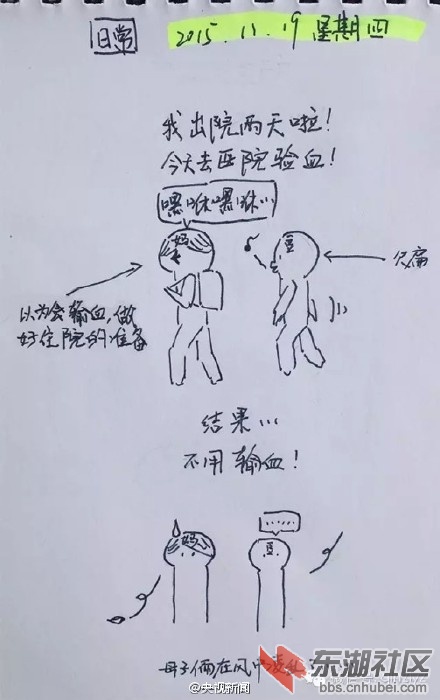 日常
2015.11.19 星期四
我出院两天啦！
今天去医院验血！
嘿咻嘿咻…
妈
豆
欠扁
以为会输血,做
好住院的准备
结果…
不用输血！
妈
......
豆
母子俩在风中凌乱
@央视新闻
东湖社区
bbs.cnhubei.com